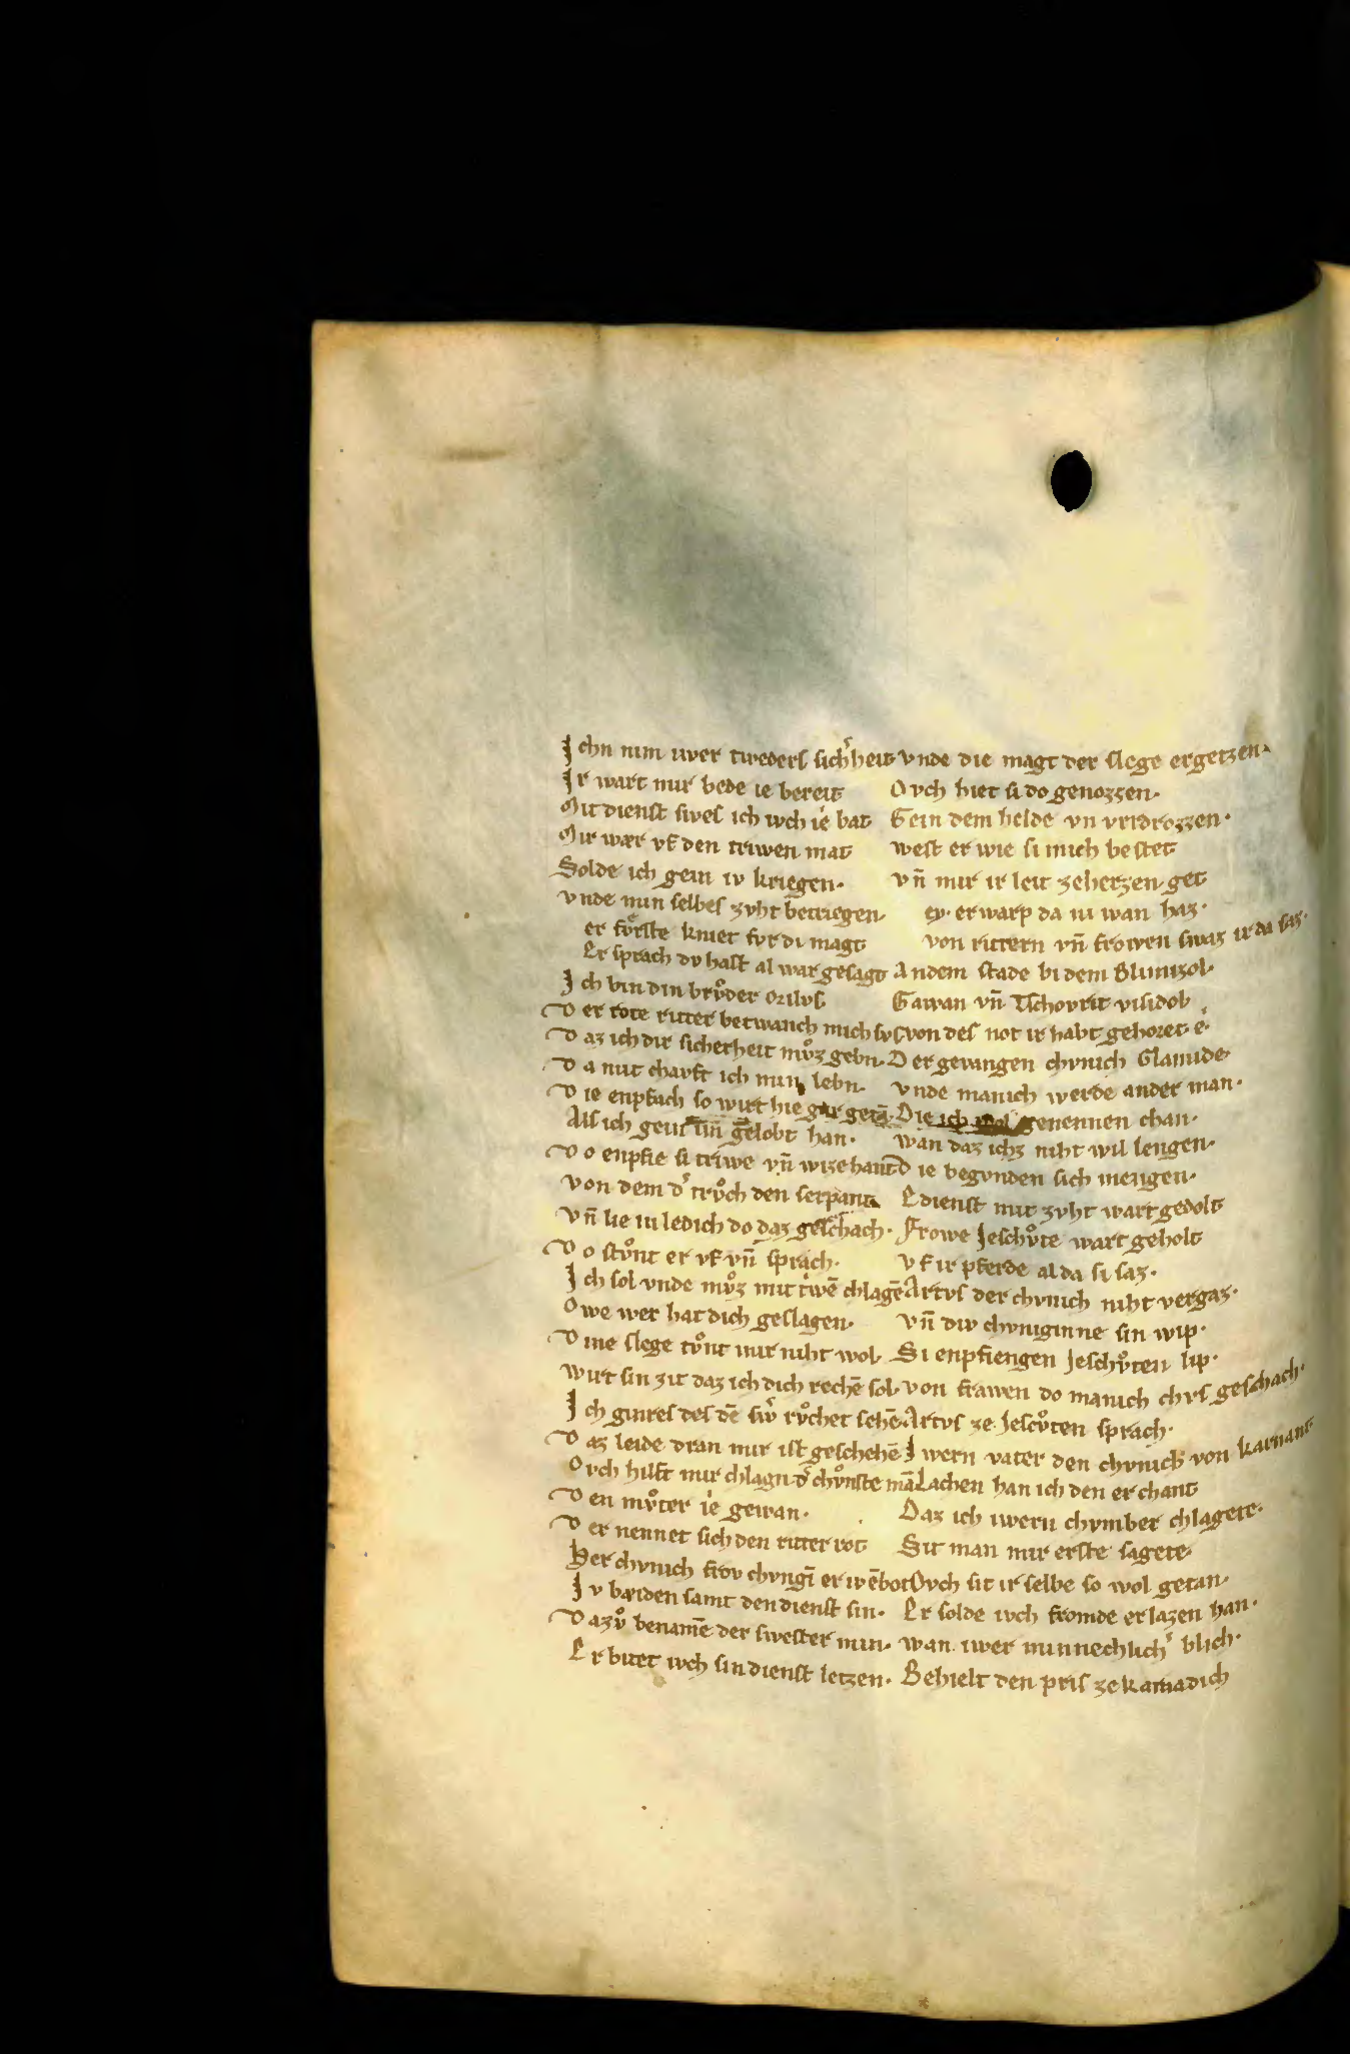 Ichn nim iwer tweders sich͛heit
Ir wart mir bede ie bereit
Mit dienst swes ich iwch ie bat
Mir wær vf den triwen mat
Solde ich gein iv kriegen·
vnde min selbes zvht betriegen·
er fv̊rste kniet fvr di magt
Er sprach dv hast al war gesagt
Ich bin din brv̊der orilvs
D er rote ritter betwanch mich svs
D az ich dir sicherheit mv̊z gebn·
D a mit charft ich min lebn·
D ie enpfach so wirt hie gar getā·
Als ich gein im gelobt han·
D o enpfie si triwe vn̄ wize hant
von dem d͛ trv̊ch den serpant
vn̄ lie in ledich do daz geschach·
D o stv̊nt er vf vn̄ sprach·
Ich sol vnde mv̊z mit triwē chlagē
Owe wer hat dich geslagen·
D ine slege tv̊nt mir niht wol·
wirt sin zit daz ich dich rechē sol·
Ich ginres des dē sw͛ rv̊chet sehē
D az leide dran mir ist geschehē
Ovch hilft mir chlagn d͛ chv̊nste mā
D en mv̊ter ie gewan·
D er nennet sich den ritter rot
Her chvnich frov chvngī er iw ēbot
Iv bæiden samt den dienst sin·
D azv̊ benamē der swester min·
Er bitet iwch sin dienst letzen·
vnde die magt der slege ergetzen·
Ovch hiet si do genozzen·
Gein dem helde vn vrdrozzen·
west er wie si mich bestet
vn̄ mir ir leit zeherzen get
ey· erwarp da iu wan haz·
von rittern vn̄ frowen swaz ir da saz·
Andem stade bi dem Blimizol·
Gawan vn̄ Tschovrit visidol
von des not ir habt gehoret e·
D er gevangen chvnich Clamide·
vnde manich werde ander man·
Die ich wol genennen chan·
wan daz ichz niht wil lengen·
D ie begvnden sich mengen·
E dienst mit zvht wart gedolt
Frowe Jeschv̊te wart geholt
vf ir pferde al da si saz·
Artvs der chvnich niht vergaz·
vn̄ div chvniginne sin wip·
Si enpfiengen Jeschv̊ten lip·
von frawen do manich chvs geschach·
Artvs ze Jescv̊ten sprach·
Iwern vater den chvnich von karnant
Lachen han ich den erchant
Daz ich iwern chvmber chlagete·
Sit man mir erste sagete·
Ovch sit ir selbe so wol getan·
Er solde iwch fromde erlazen han·
wan iwer minnechlich͛ blich·
Behielt den pris ze karnadich